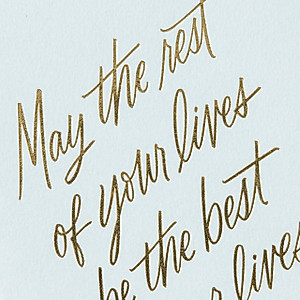 May the rest
of your lives
be the best
lives